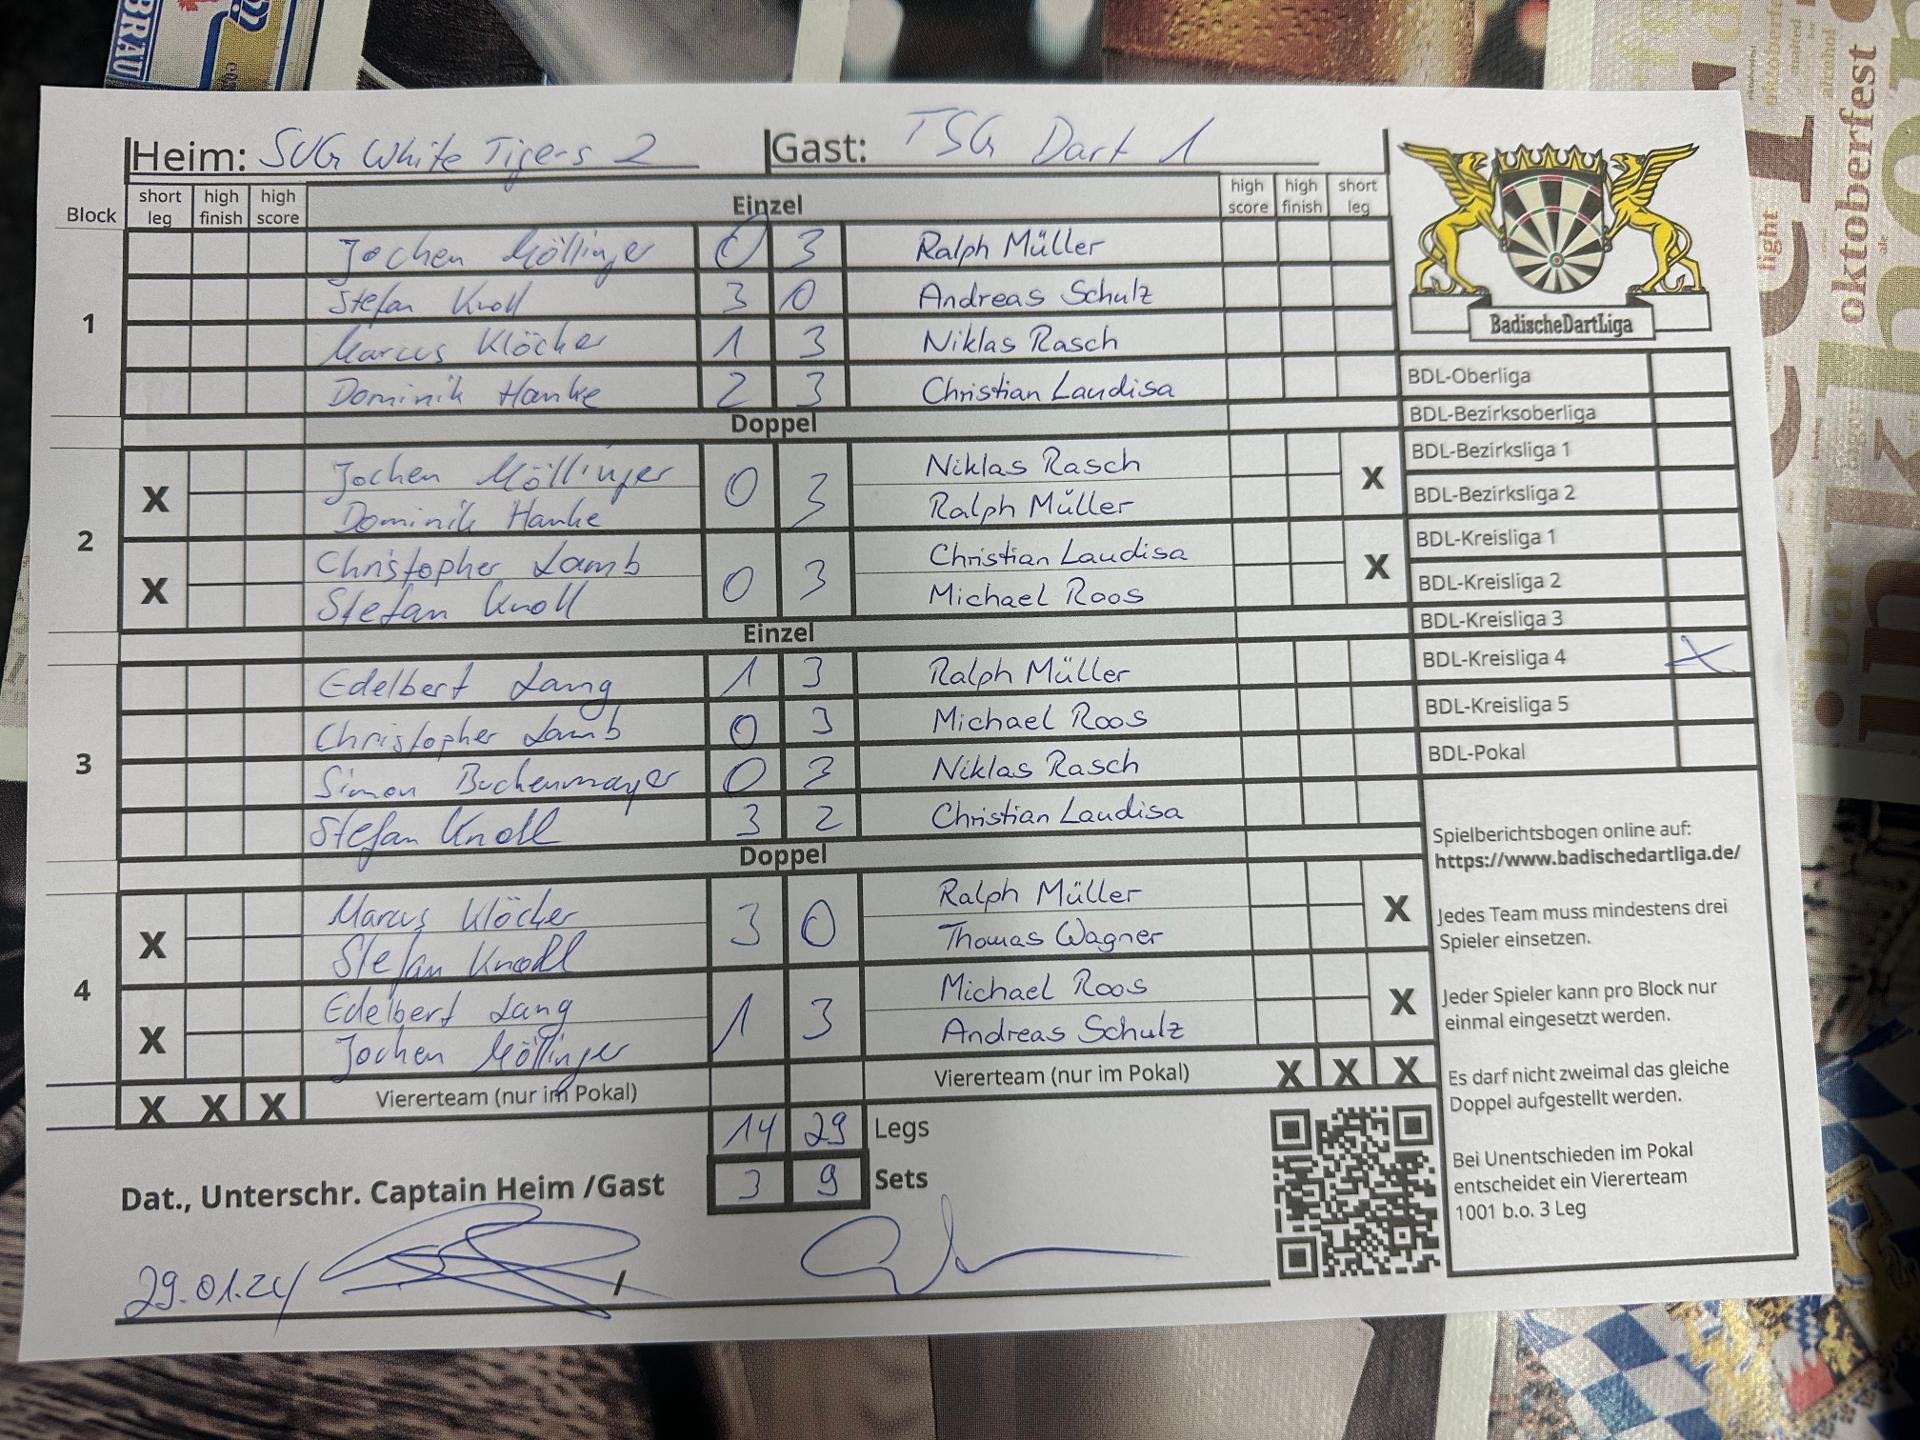 BRÄU
Heim: SVG White Tigers 2 Gast: TSG Dart 1
Block short leg high finish high score Einzel high score high finish short leg
1
Jochen Möllinger 0 3 Ralph Müller
Stefan Knoll 3 0 Andreas Schulz
Marcus Klöcker 1 3 Niklas Rasch
Dominik Hanke 2 3 Christian Laudisa
Doppel
2
X Jochen Möllinger 0 3 Niklas Rasch X
Dominik Hanke Ralph Müller
X Christopher Lamb 0 3 Christian Laudisa X
Stefan Knoll Michael Roos
Einzel
3
Edelbert Lang 1 3 Ralph Müller
Christopher Lamb 0 3 Michael Roos
Simon Buchenmayer 0 3 Niklas Rasch
Stefan Knoll 3 2 Christian Laudisa
Doppel
4
X Marcus Klöcker 3 0 Ralph Müller X
Stefan Knoll Thomas Wagner
X Edelbert Lang 1 3 Michael Roos X
Jochen Möllinger Andreas Schulz
X X X Viererteam (nur im Pokal) Viererteam (nur im Pokal) X X X
14 29 Legs
3 9 Sets
Dat., Unterschr. Captain Heim /Gast
29.01.24 /
BadischeDartLiga
BDL-Oberliga
BDL-Bezirksoberliga
BDL-Bezirksliga 1
BDL-Bezirksliga 2
BDL-Kreisliga 1
BDL-Kreisliga 2
BDL-Kreisliga 3
BDL-Kreisliga 4 X
BDL-Kreisliga 5
BDL-Pokal
Spielberichtsbogen online auf:
https://www.badischedartliga.de/
Jedes Team muss mindestens drei
Spieler einsetzen.
Jeder Spieler kann pro Block nur
einmal eingesetzt werden.
Es darf nicht zweimal das gleiche
Doppel aufgestellt werden.
Bei Unentschieden im Pokal
entscheidet ein Viererteam
1001 b.o. 3 Leg
oktoberfest
light
alcohol